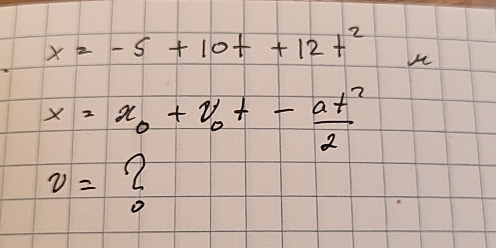 x = -5 + 10t + 12t² м
x = x₀ + v₀t - at²/2
v = ?